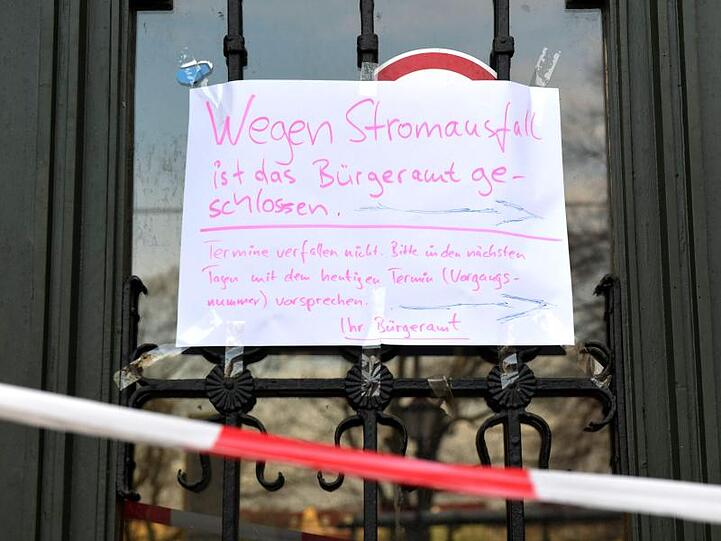 Wegen Stromausfall
ist das Bürgeramt ge-
schlossen.
Termine verfallen nicht. Bitte in den nächsten
Tagen mit dem heutigen Termin (Vorgangs-
nummer) vorsprechen.
Ihr Bürgeramt